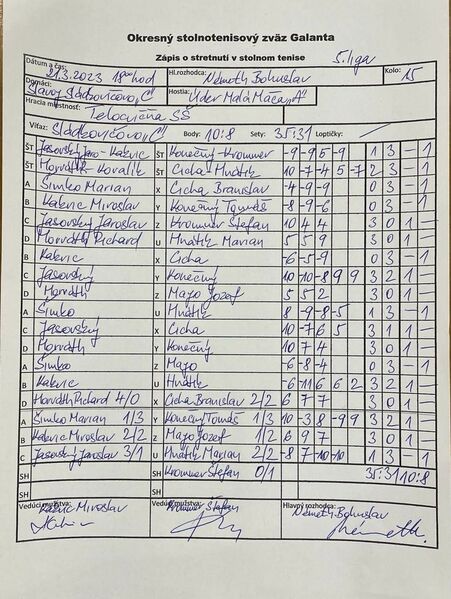 Okresný stolnotenisový zväz Galanta
Zápis o stretnutí v stolnom tenise 5. liga
Dátum a čas: 21.3.2023 18⁰⁰ hod Hl.rozhodca: Németh Bohuslav Kolo: 15
Domáci: Slavoj Sládkovičovo „C" Hostia: Úder Malá Mača „A"
Hracia miestnosť: Telocvičňa SŠ
Víťaz: Sládkovičovo „C" Body: 10:8 Sety: 35:31 Loptičky: /
ŠT Jasovský Jaro - Kabric ŠT Konečný - Krommer -9 -9 5 -9 1 3 - 1
ŠT Horváth - Kovalik ŠT Cicha - Hnátik -10 -7 -4 5 -7 2 3 - 1
A Šimko Marian X Cicha Branislav -4 -9 -9 0 3 - 1
B Kabric Miroslav Y Konečný Tomáš -8 -9 -6 0 3 - 1
C Jasovský Jaroslav Z Krommer Štefan 10 4 4 3 0 1 -
D Horváth Richard U Hnátik Marian 5 5 9 3 0 1 -
B Kabric X Cicha -6 -5 -9 0 3 - 1
C Jasovský Y Konečný 10 -10 -8 9 9 3 2 1 -
D Horváth Z Mazo Jozef 5 5 2 3 0 1 -
A Šimko U Hnátik 8 -9 -8 -5 1 3 - 1
C Jasovský X Cicha 10 -7 6 5 3 1 1 -
D Horváth Y Konečný 10 7 4 3 0 1 -
A Šimko Z Mazo -6 -8 -4 0 3 - 1
B Kabric U Hnátik -6 11 6 6 2 3 2 1 -
D Horváth Richard 4/0 X Cicha Branislav 2/2 6 7 7 3 0 1 -
A Šimko Marian 1/3 Y Konečný Tomáš 1/3 10 -3 8 -9 9 3 2 1 -
B Kabric Miroslav 2/2 Z Mazo Jozef 1/2 6 9 7 3 0 1 -
C Jasovský Jaroslav 3/1 U Hnátik Marian 2/2 -8 7 -10 -10 1 3 - 1
SH SH Krommer Štefan 0/1 35:31 10:8
SH SH
Vedúci mužstva: Kabric Miroslav Vedúci mužstva: Krommer Štefan Hlavný rozhodca: Németh Bohuslav